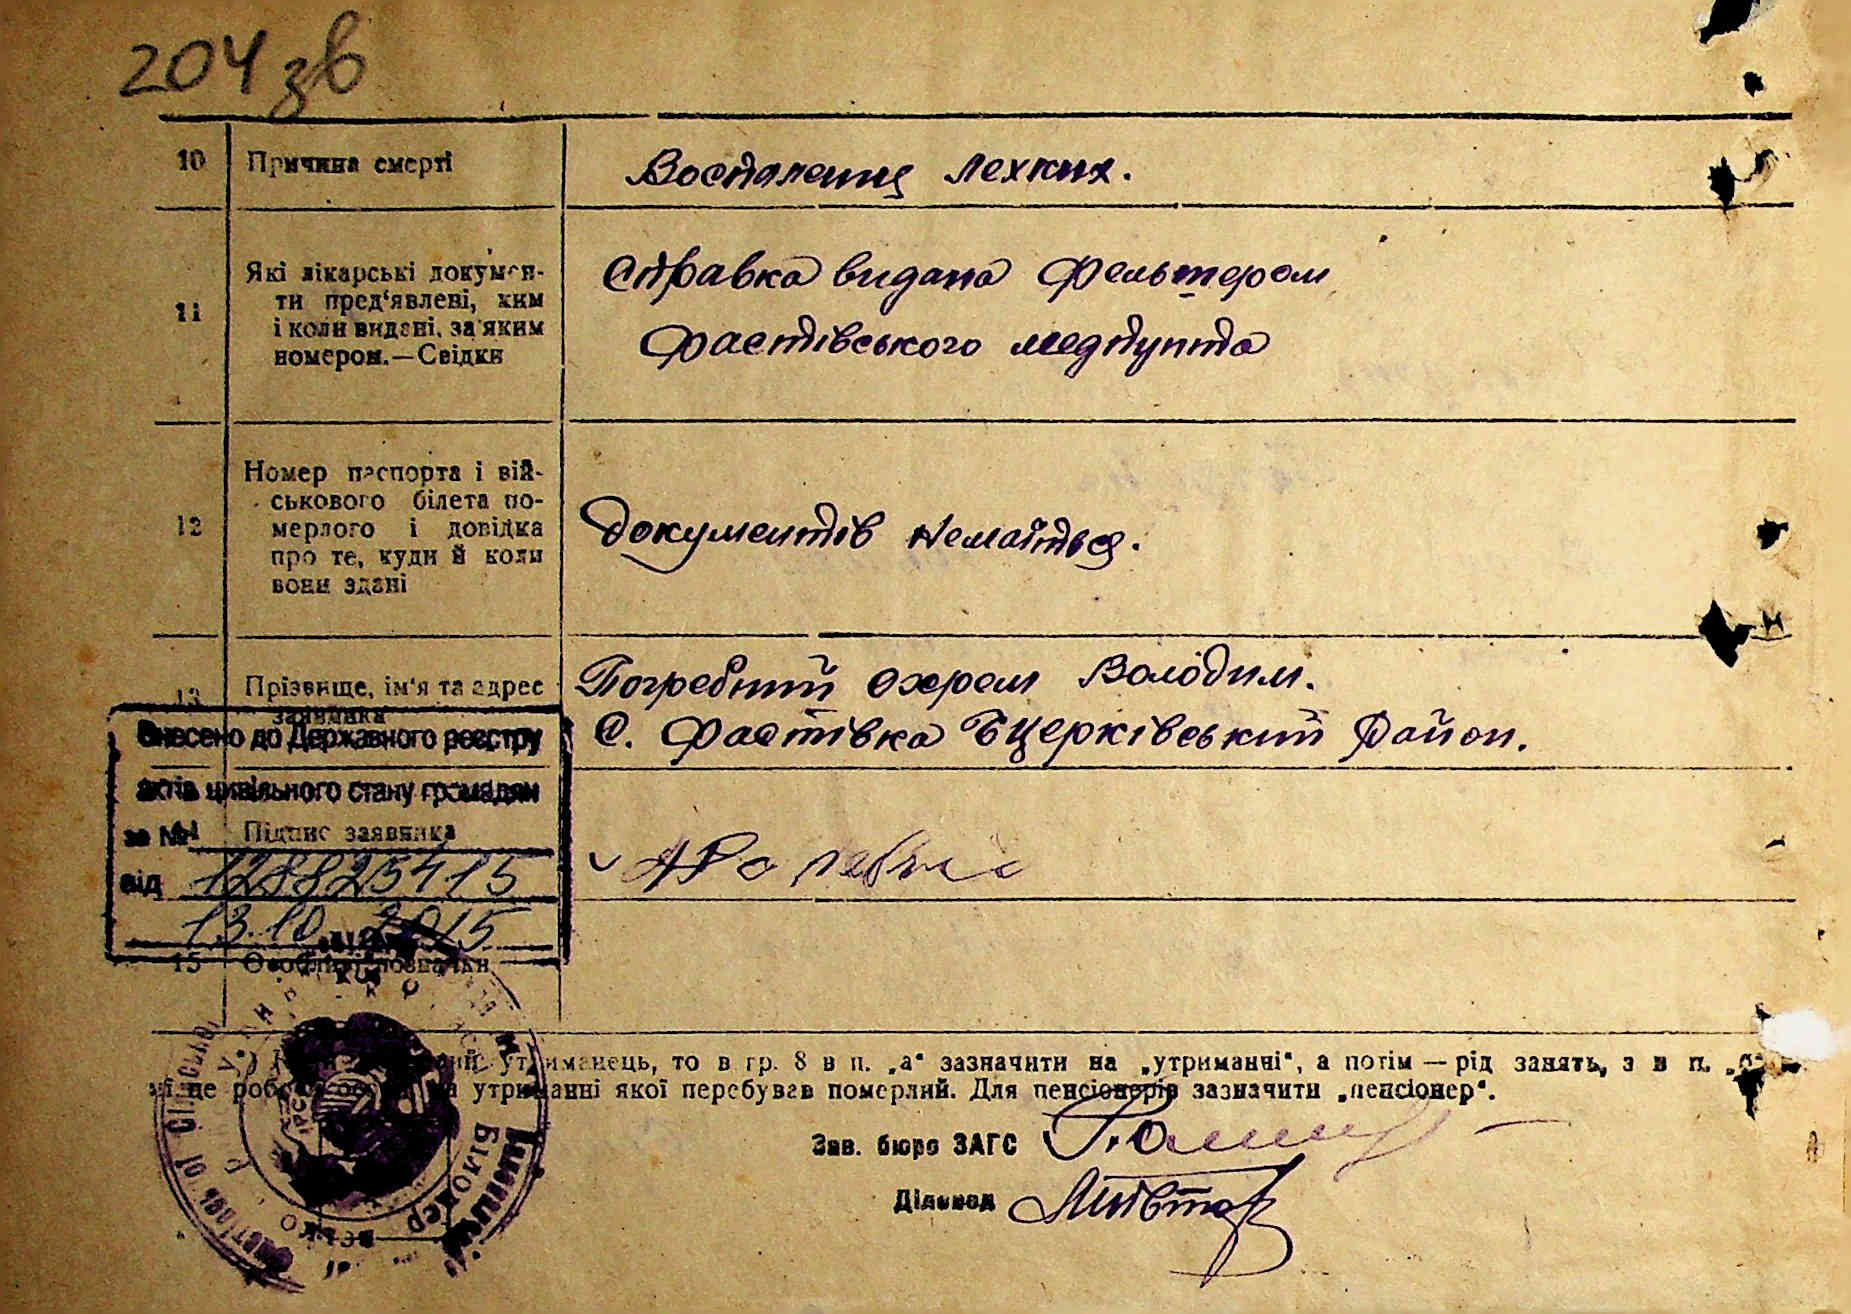 204 зв
10 Причина смерті
Воспаления лехких.
11 Які лікарські докумен-
ти пред'явлені, ким
і коли видані, за яким
номером.—Свідки
Справка видана фельтером
Фастівського медпункта
12 Номер паспорта і вій-
ськового білета по-
мерлого і довідка
про те, куди й коли
вони здані
Документів немаїться.
13 Прізвище, ім'я та адрес
заявника
Погребний Охрем Володим.
С. Фастівка Бцерківський район.
Внесено до Державного реєстру
актів цивільного стану громадян
за №
Підпис заявника
від 128825415
13.10 2015
15 Особливі познаки
утриманець, то в гр. 8 в п. „а“ зазначити на „утриманні“, а потім — рід занять, з в п.
це утриманні якої перебував померлий. Для пенсіонерів зазначити „пенсіонер“.
Зав. бюро ЗАГС
Діловод